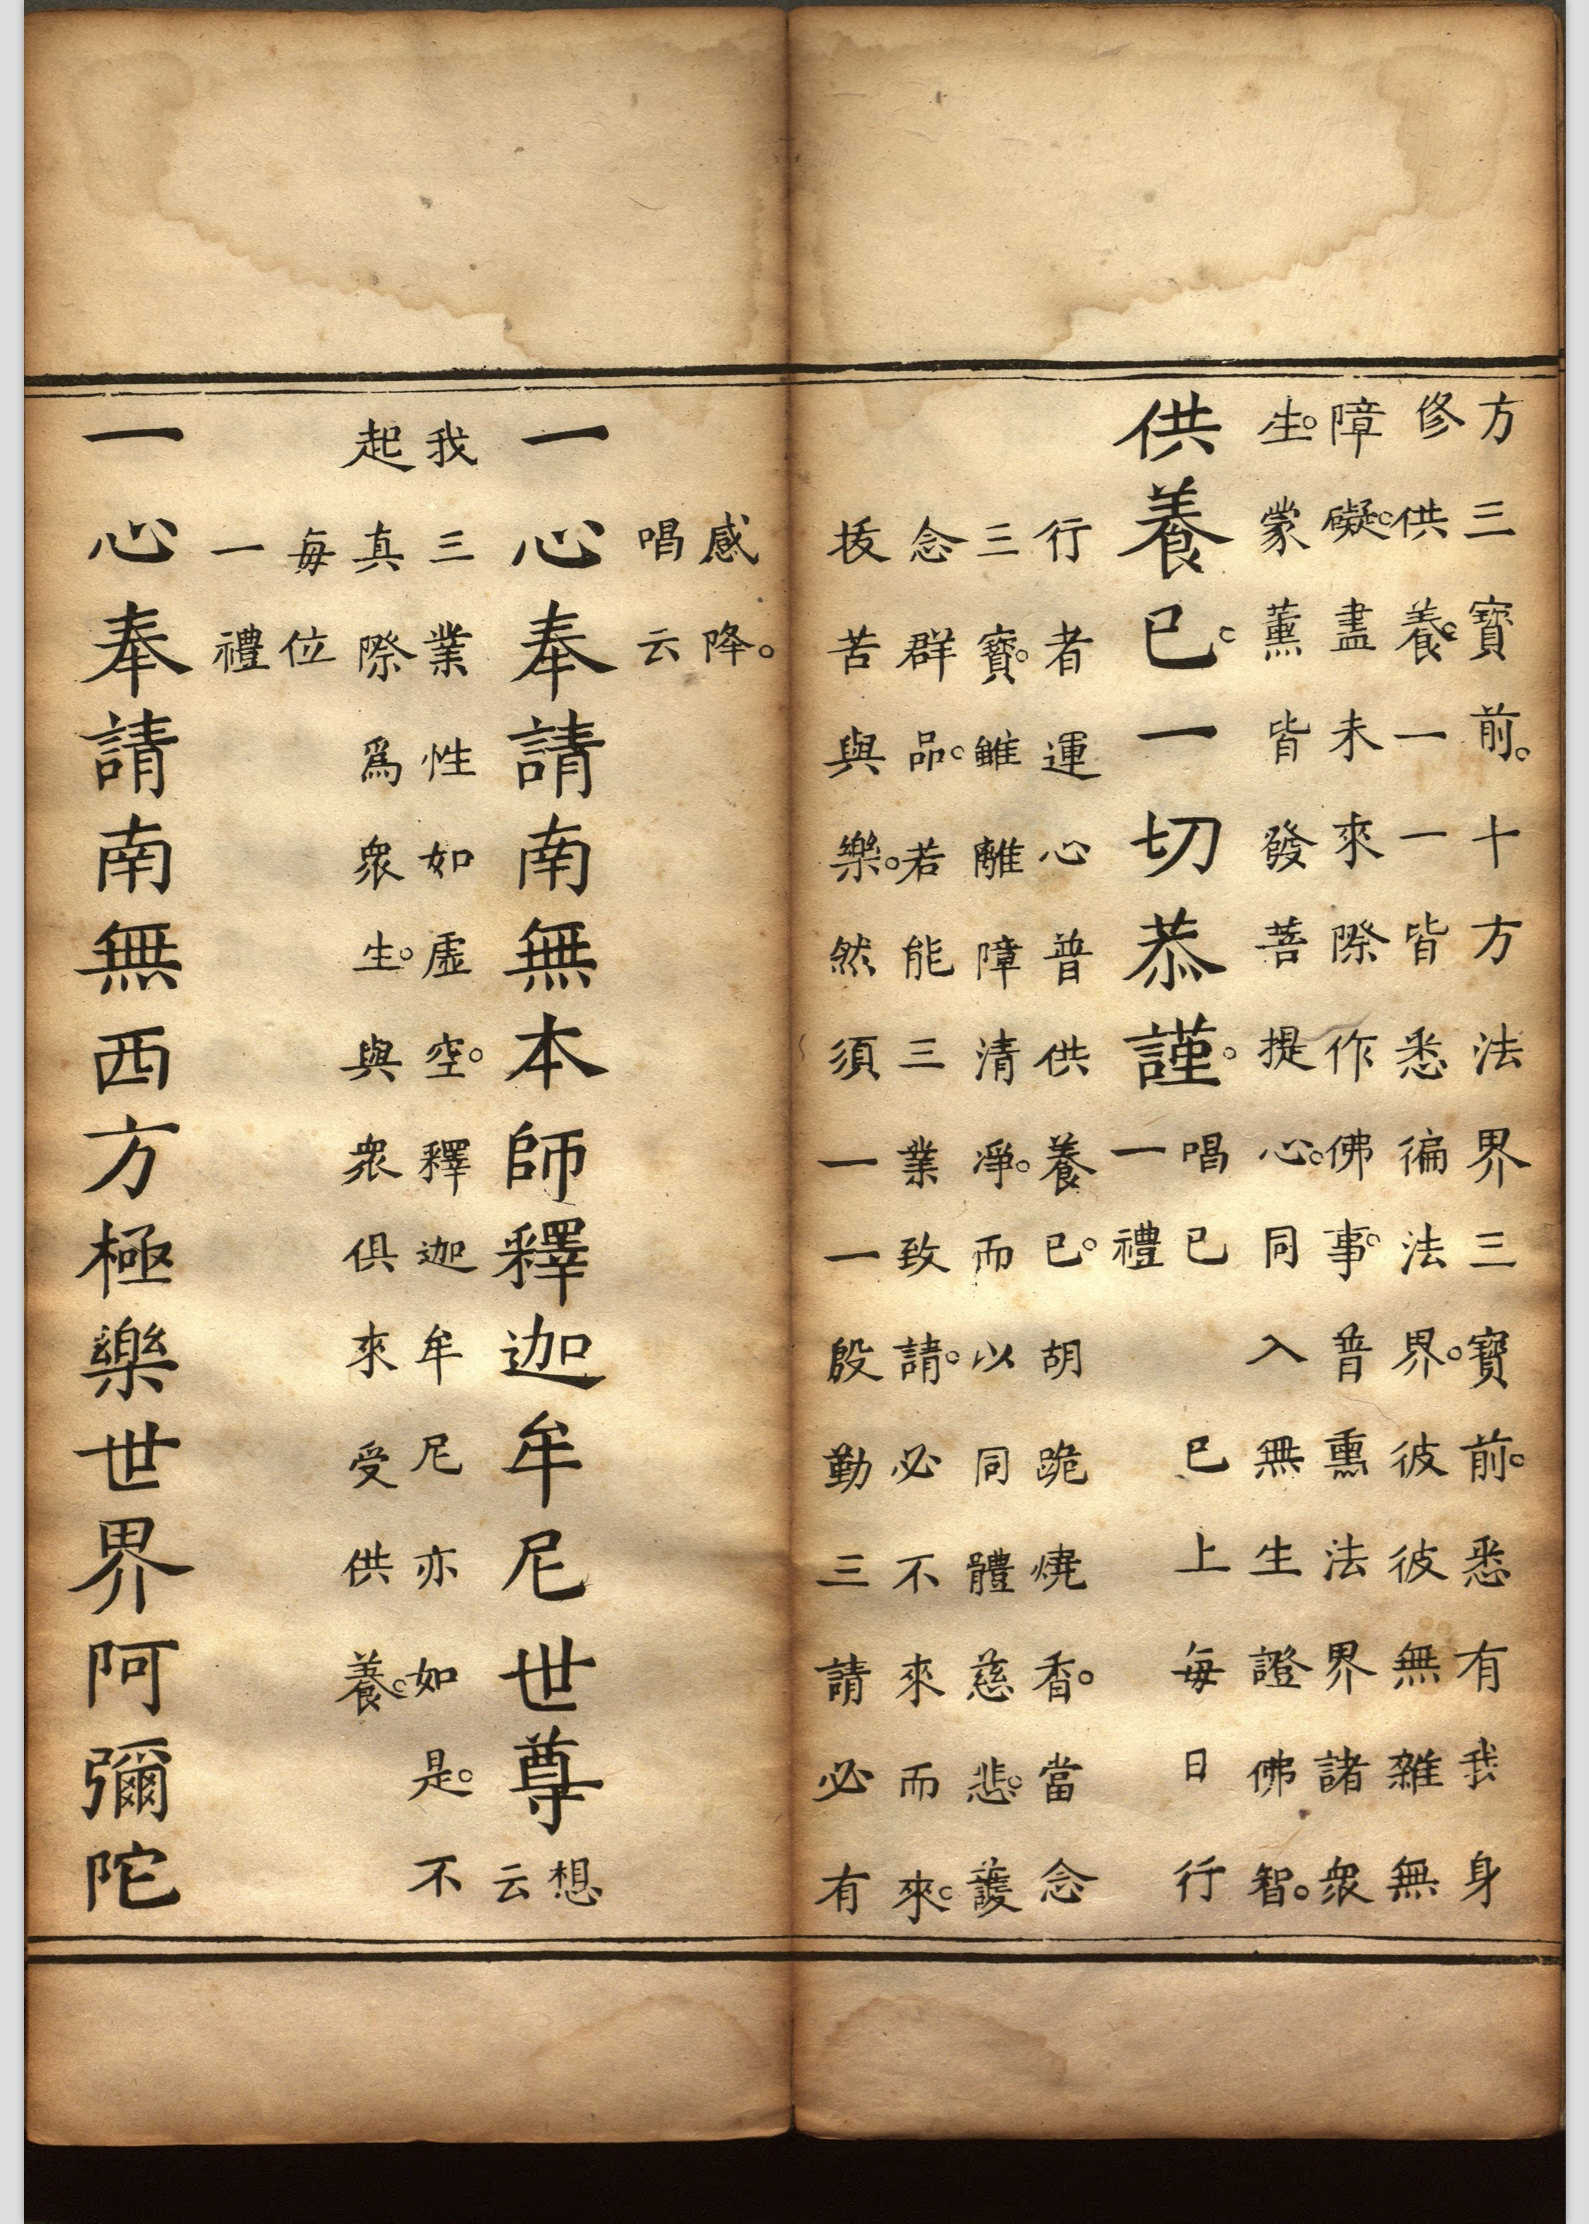 方三寶前。十方法界三寶前。悉有我身
修供養。一一皆悉徧法界。彼彼無雜無
障礙。盡未來際作佛事。普熏法界諸衆
生。蒙薰皆發菩提心。同入無生證佛智。
供養已。一切恭謹。
唱已 已上每日行
一禮
行者運心普供養已。胡跪燒香。當念
三寶。雖離障清淨。而以同體慈悲。護
念群品。若能三業致請。必不來而來。
拔苦與樂。然須一一殷勤三請必有
感降。
唱云
一心奉請南無本師釋迦牟尼世尊
想
云
我三業性如虛空。釋迦牟尼亦如是。不
起真際爲衆生。與衆俱來受供養。
每位
一禮
一心奉請南無西方極樂世界阿彌陀